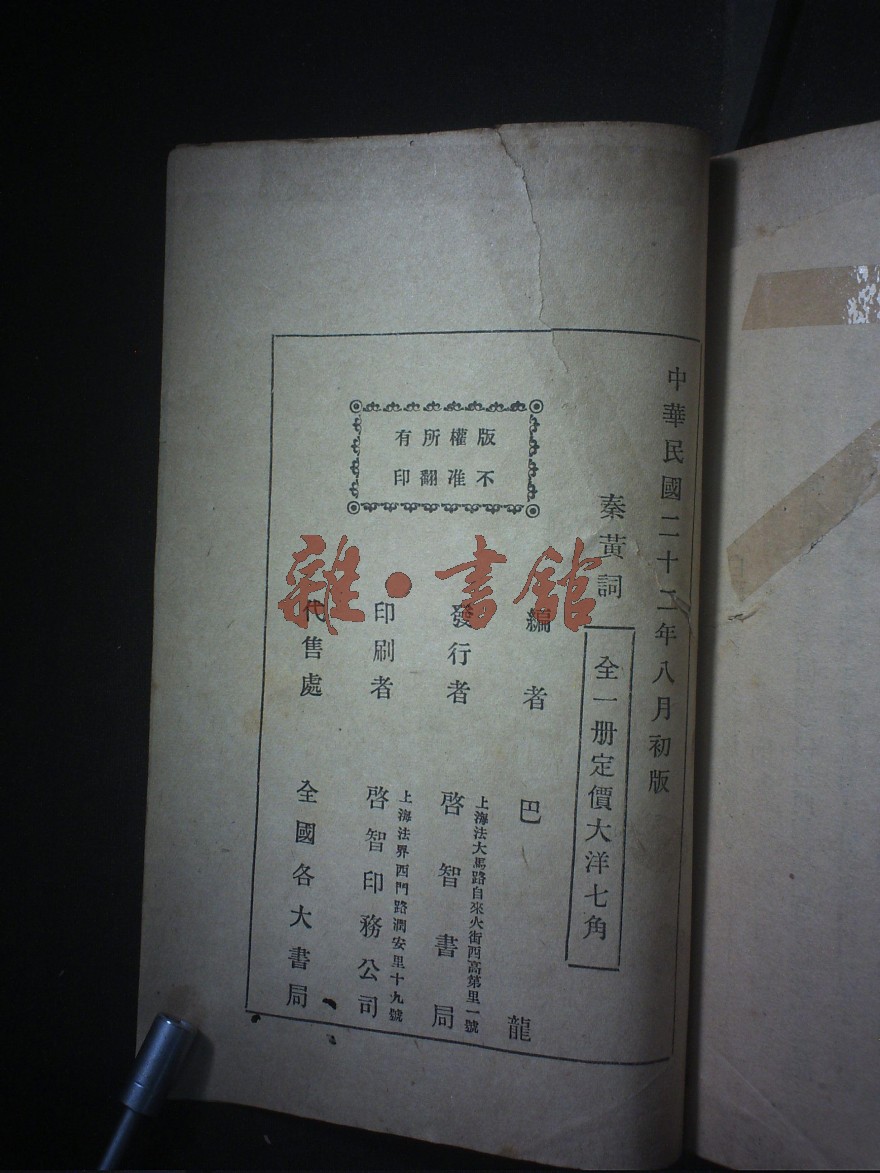 中華民國二十二年八月初版
秦黃詞
全一册定價大洋七角
編者 巴龍
上海法大馬路自來火街西高第里一號
發行者 啓智書局
上海法界西門路潤安里十九號
印刷者 啓智印務公司
代售處 全國各大書局
版權所有
不准翻印
雜·書館